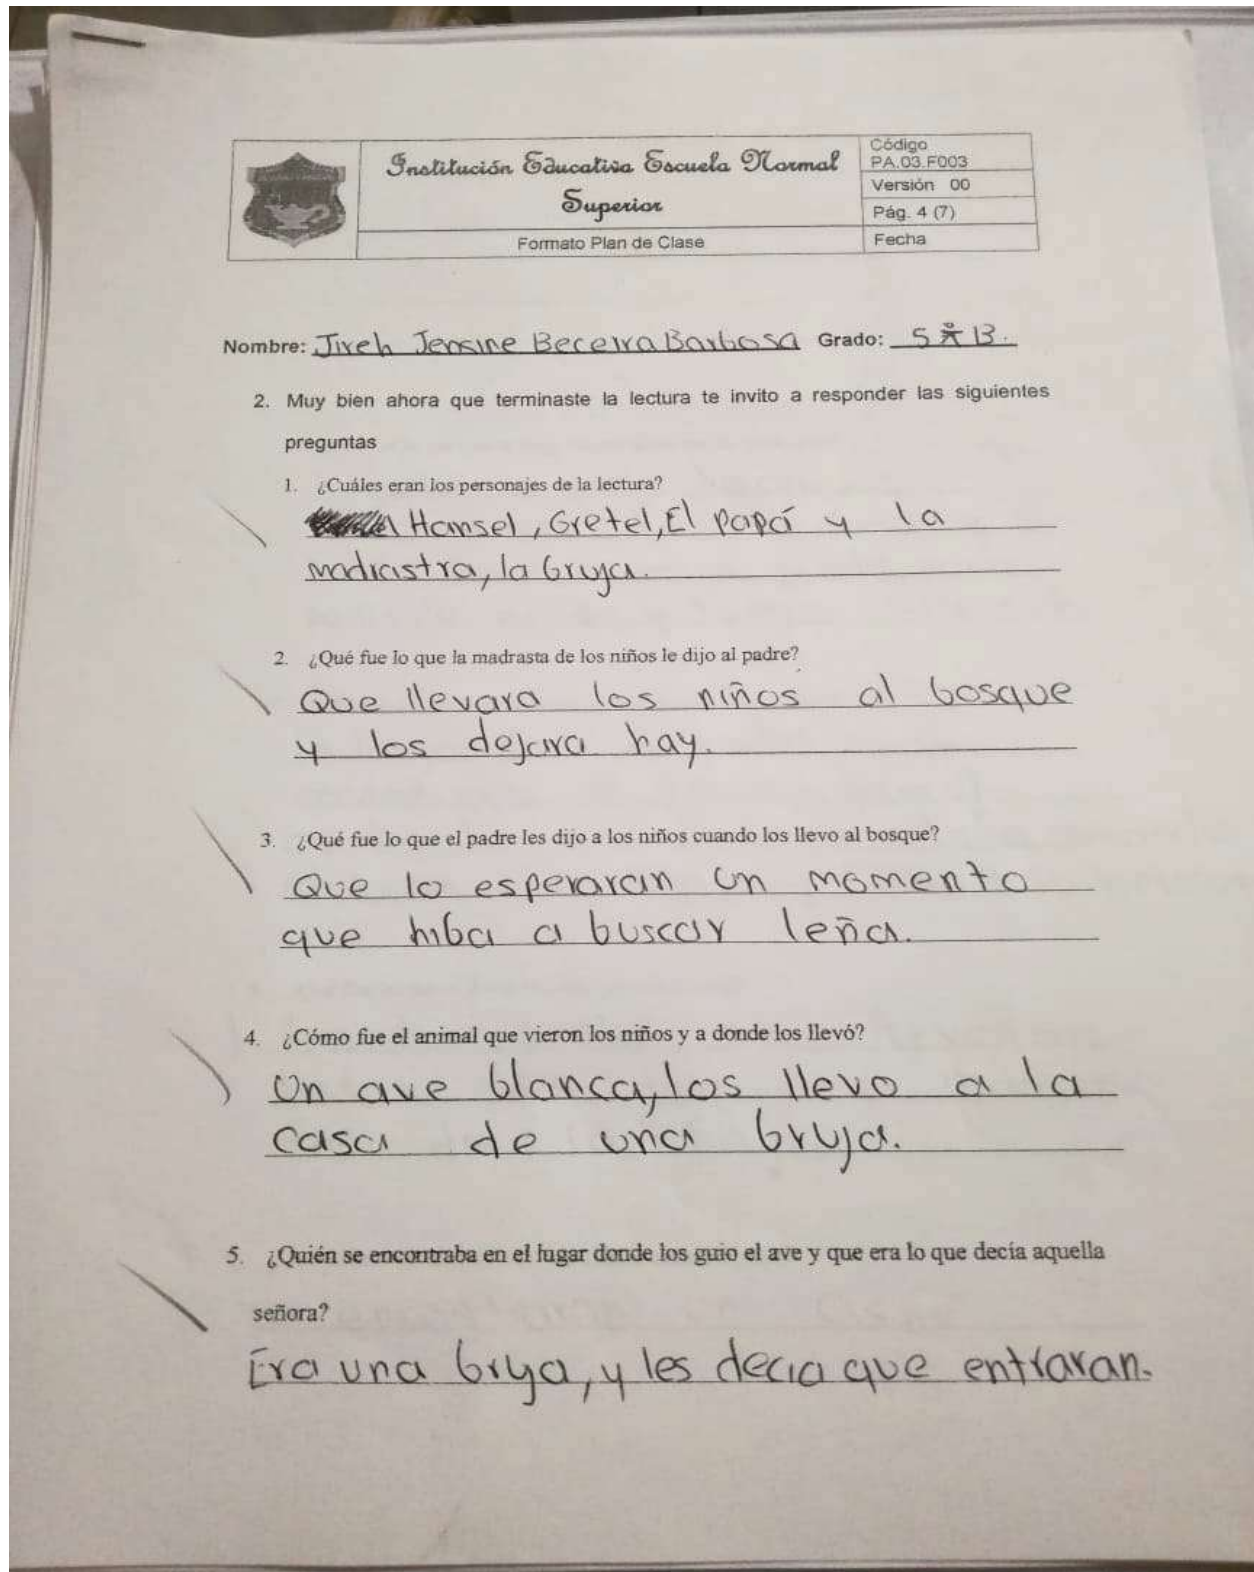 Institución Educativa Escuela Normal
Superior
Formato Plan de Clase
Código
PA.03.F003
Versión 00
Pág. 4 (7)
Fecha
Nombre: Jireh Jensine Becerra Barbosa Grado: 5 B.
2. Muy bien ahora que terminaste la lectura te invito a responder las siguientes
preguntas
1. ¿Cuáles eran los personajes de la lectura?
Hansel, Gretel, El papá y la
madrastra, la bruja.
2. ¿Qué fue lo que la madrasta de los niños le dijo al padre?
Que llevara los niños al bosque
y los dejara hay.
3. ¿Qué fue lo que el padre les dijo a los niños cuando los llevo al bosque?
Que lo esperaran un momento
que hiba a buscar leña.
4. ¿Cómo fue el animal que vieron los niños y a donde los llevó?
Un ave blanca, los llevo a la
casa de una bruja.
5. ¿Quién se encontraba en el lugar donde los guio el ave y que era lo que decía aquella
señora?
Era una brya, y les decia que entraran.